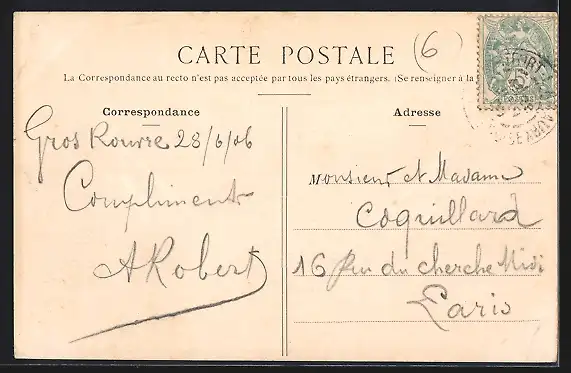 CARTE POSTALE (6)
La Correspondance au recto n'est pas acceptée par tous les pays étrangers. (Se renseigner à la
Correspondance
Gros Rouvre 28/6/06
Compliments
A Robert
Adresse
Monsieur et Madame
Coquillard
16 Rue du cherche Midi
Paris